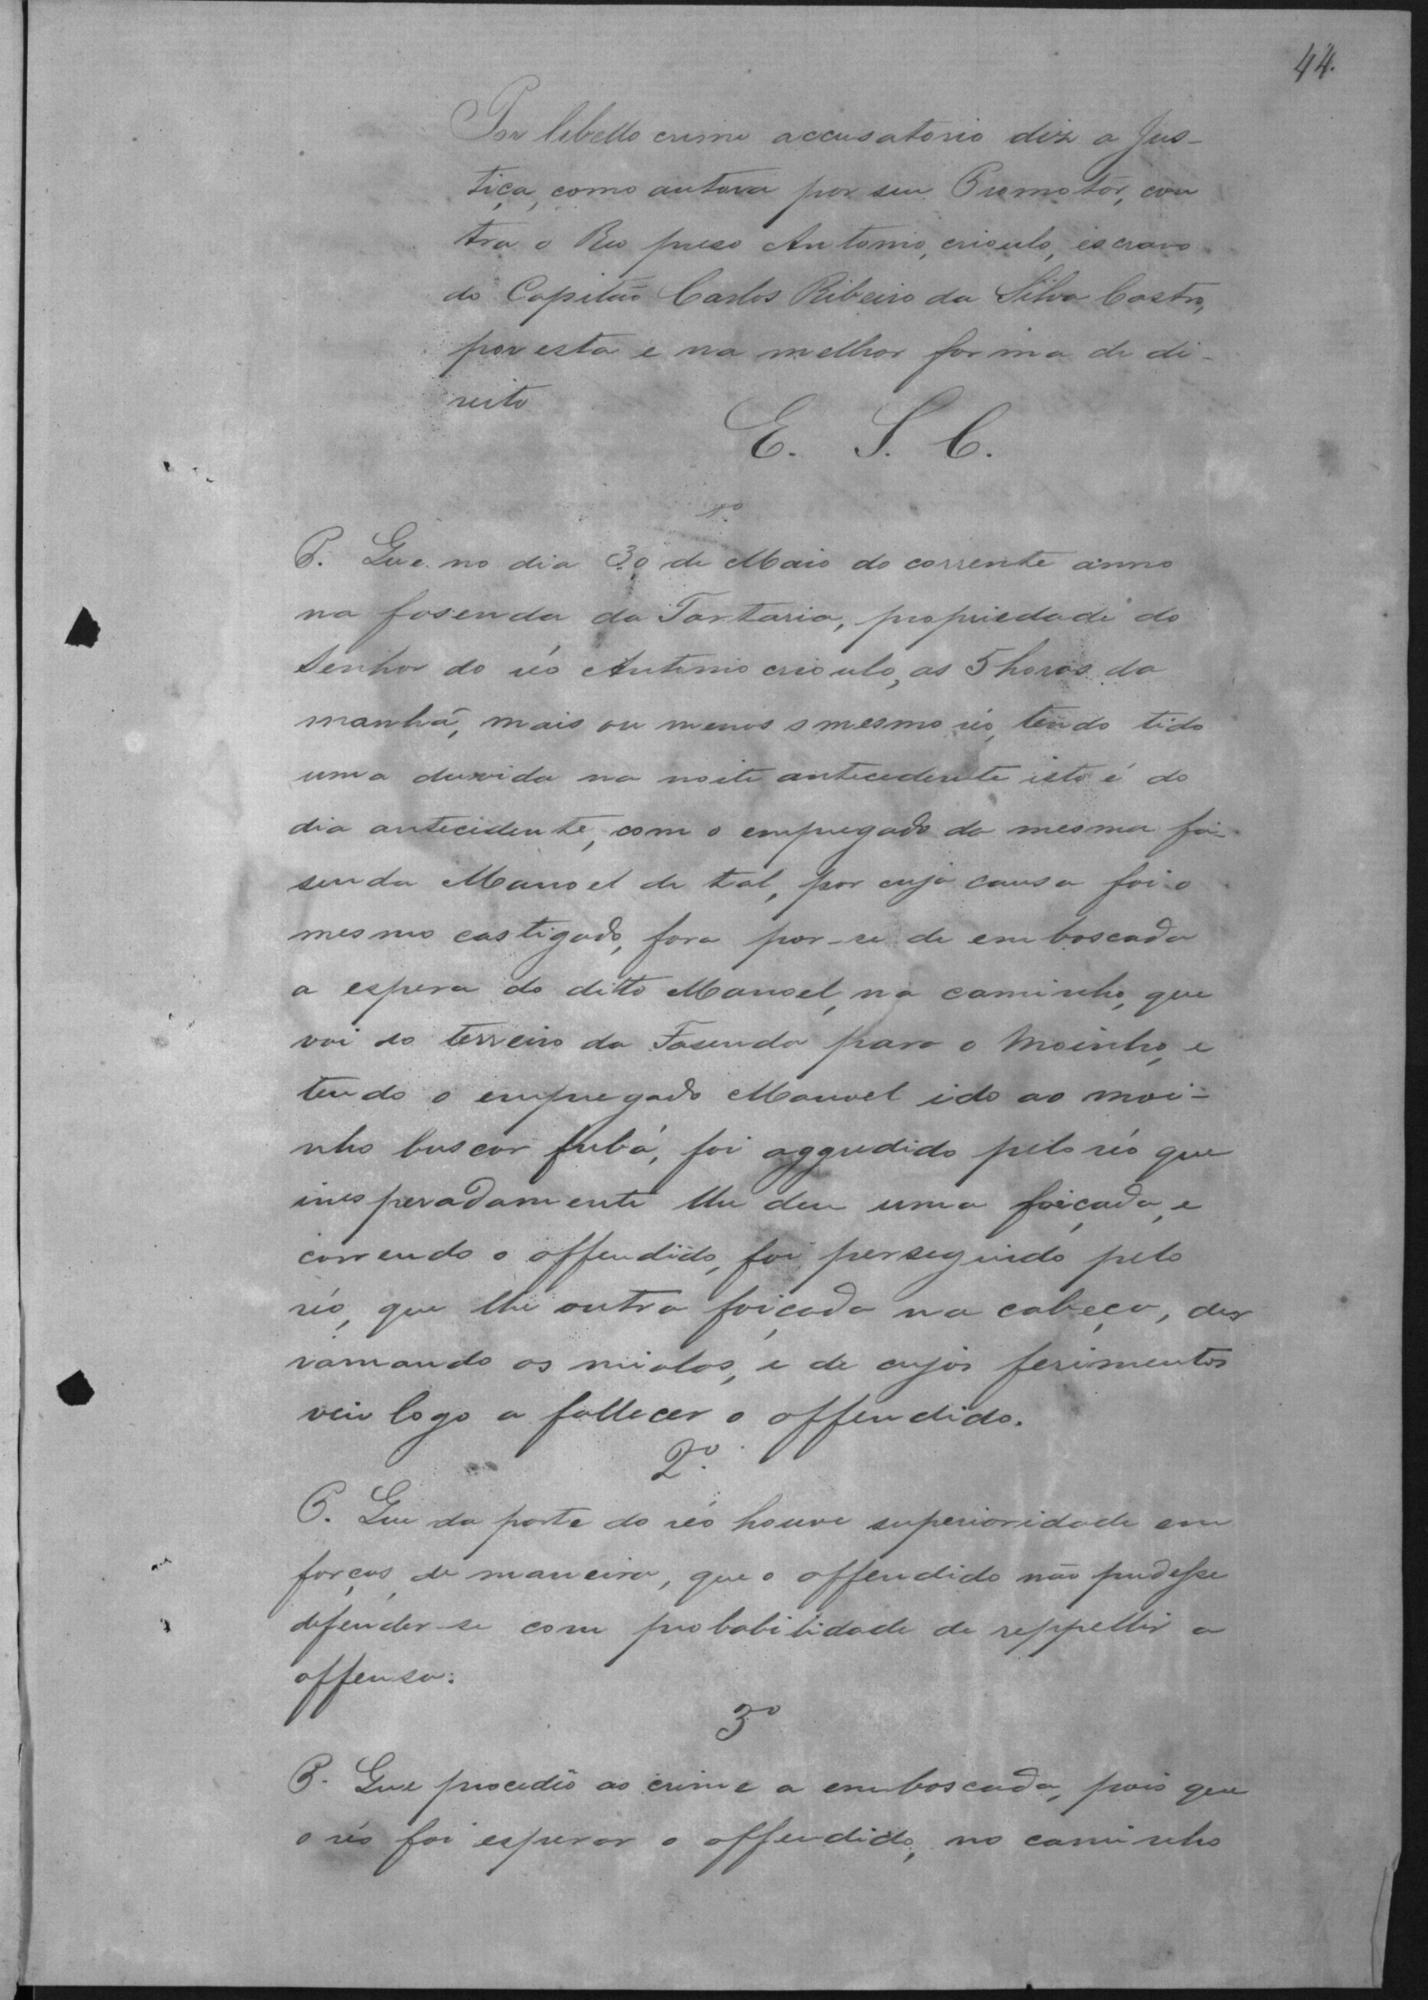 44.
Por libello crime accusatorio diz a Jus-
tiça, como autora por seu Promotor, con
tra o Reo preso Antonio, crioulo, escravo
do Capitão Carlos Ribeiro da Silva Castro,
por esta e na melhor forma de di-
reito
E. S. C.
1º
P. Que no dia 30 de Maio do corrente anno
na fasenda da Tartaria, propriedade do
Senhor do réo Antonio crioulo, as 5 horas da
manhã, mais ou menos o mesmo réo, tendo tido
uma duvida na noite antecedente isto é do
dia antecidente, com o empregado da mesma fa-
senda Manoel de tal, por cuja causa foi o
mesmo castigado, fora por-se de emboscada
a espera do ditto Manoel, no caminho, que
vai do terreiro da Fasenda para o Moinho, e
tendo o empregado Manoel ido ao moi-
nho buscar fubá, foi aggredido pelo réo que
inesperadamente lhe deu uma foiçada, e
correndo o offendido, foi perseguido pelo
réo, que lhe outra foiçada na cabeça, der
ramando os miolos, e de cujos ferimentos
veio logo a fallecer o offendido.
2º
P. Que da parte do réo houve superioridade em
forças de maneira, que o offendido não pudesse
defender-se com probabilidade de reppellir a
offensa.
3º
P. Que procedêo ao crime a emboscada, pois que
o réo foi esperar o offendido, no caminho